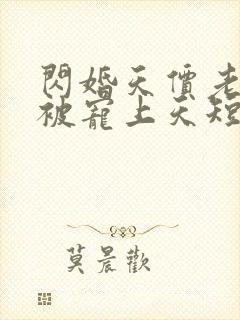 閃婚天價老
被寵上天短
莫晨歡